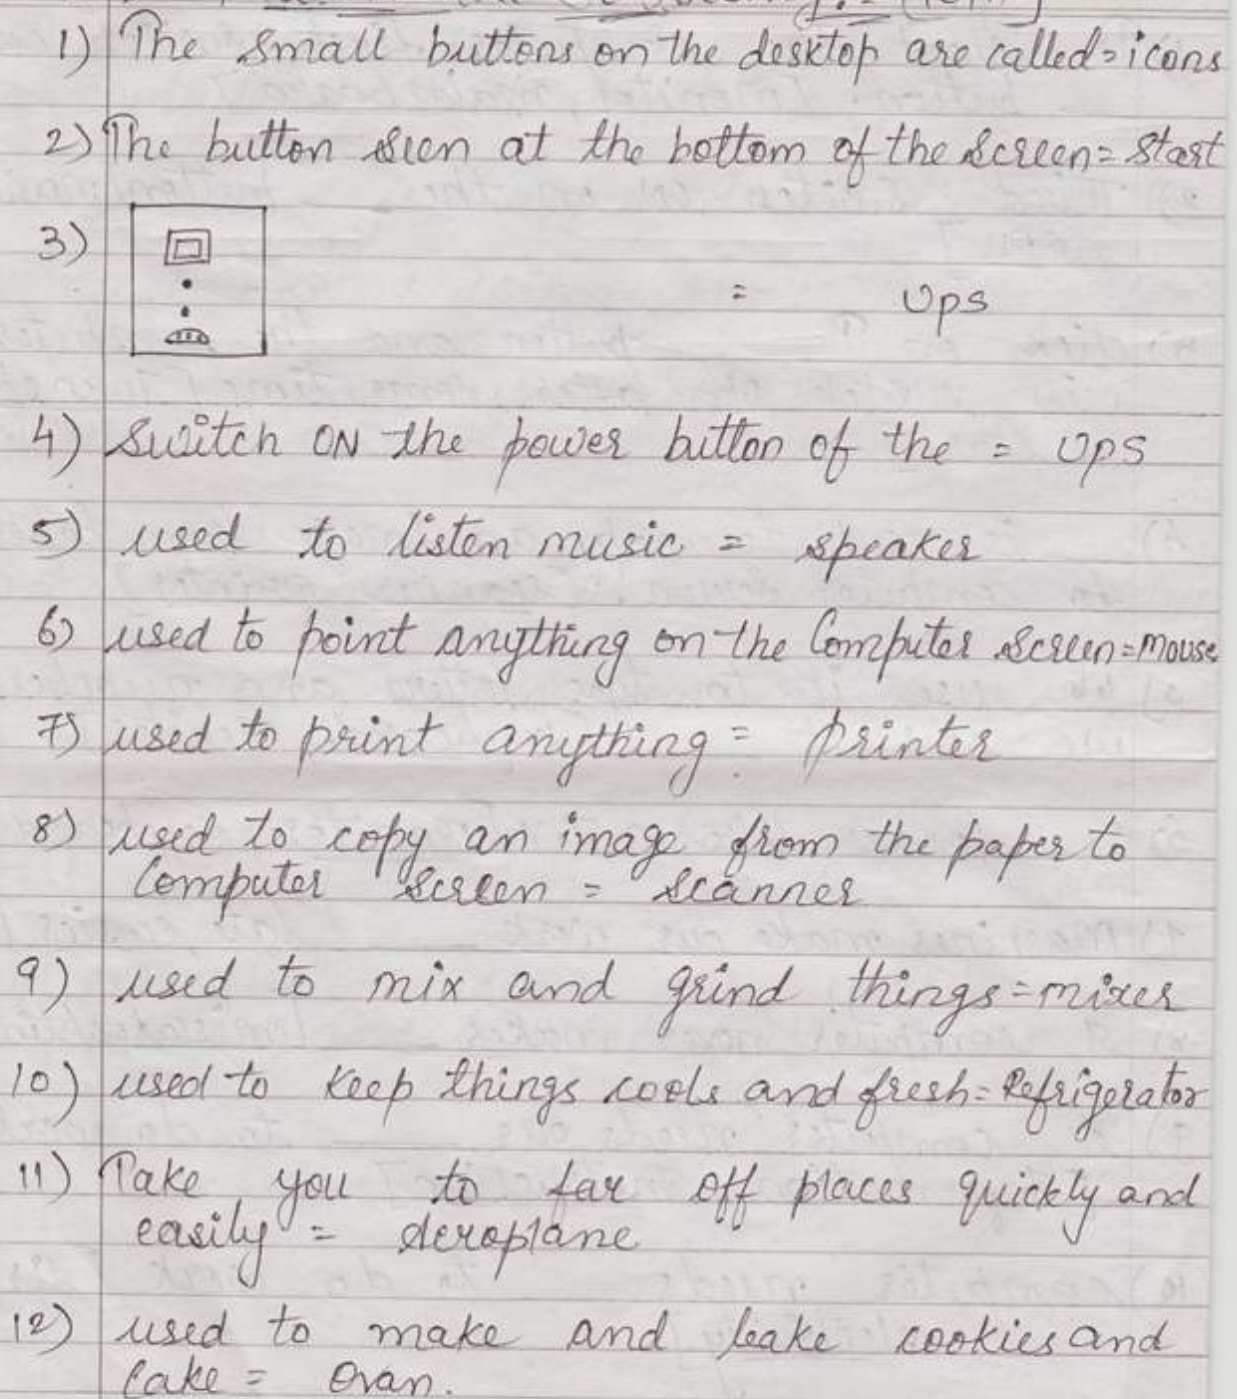 1) The small buttons on the desktop are called = icons
2) The button seen at the bottom of the screen = start
3) = Ups
4) switch ON the power button of the = Ups
5) used to listen music = speaker
6) used to point anything on the Computer screen = mouse
7) used to print anything = printer
8) used to copy an image from the paper to
Computer screen = scanner
9) used to mix and grind things = mixer
10) used to keep things cools and fresh = Refrigerator
11) Take you to far off places quickly and
easily = aeroplane
12) used to make and bake cookies and
Cake = Ovan.